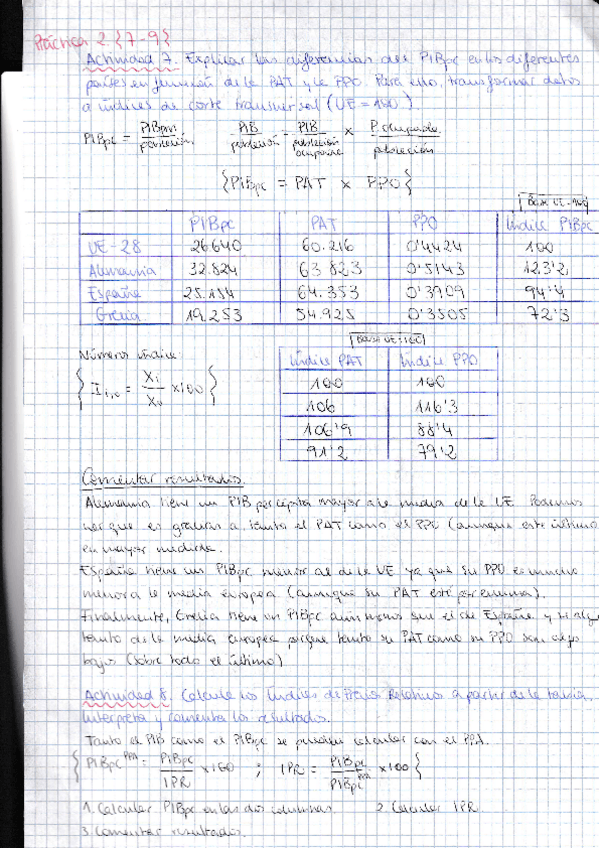 Práctica 2. {7-9}
Actividad 7. Explicar las diferencias del PIBpc en los diferentes
países en función de la PAT y la PPO. Para ello, transformar datos
a índices de corte transversal (UE = 100)
PIBpc = PIBpm / población   PIB / población = PIB / población ocupante × P. ocupada / población
{PIBpc = PAT × PPO}
Base UE=100
PIBpc PAT PPO Índice PIBpc
UE-28 26640 60.216 0'4424 100
Alemania 32.824 63823 0'5143 123'2
España 25.154 64.353 0'3909 94'4
Grecia 19.253 54.925 0'3505 72'3
Base UE=100
Números índice: Índice PAT Índice PPO
{I i,o = Xi / Xo ×100} 100 100
106 116'3
106'9 88'4
91'2 79'2
Comentar resultados.
Alemania tiene un PIB per cápita mayor a la media de la UE. Podemos
ver que es gracias a tanto el PAT como el PPO (aunque este último
en mayor medida.
España tiene un PIBpc menor al de la UE ya que su PPO es mucho
menor a la media europea (aunque su PAT esté por encima).
Finalmente, Grecia tiene un PIBpc aún menos que el de España y se aleja
tanto de la media europea porque tanto su PAT como su PPO son algo
bajos (sobre todo el último)
Actividad 8. Calcule los Índices de Precios Relativos a partir de la tabla,
interpreta y comenta los resultados.
Tanto el PIB como el PIBpc se pueden calcular con el PPA.
{PIBpc PPA = PIBpc / IPR ×100 ; IPR = PIBpc / PIBpc PPA ×100}
1. Calcular PIBpc en las dos columnas. 2. Calcular IPR
3. Comentar resultados.